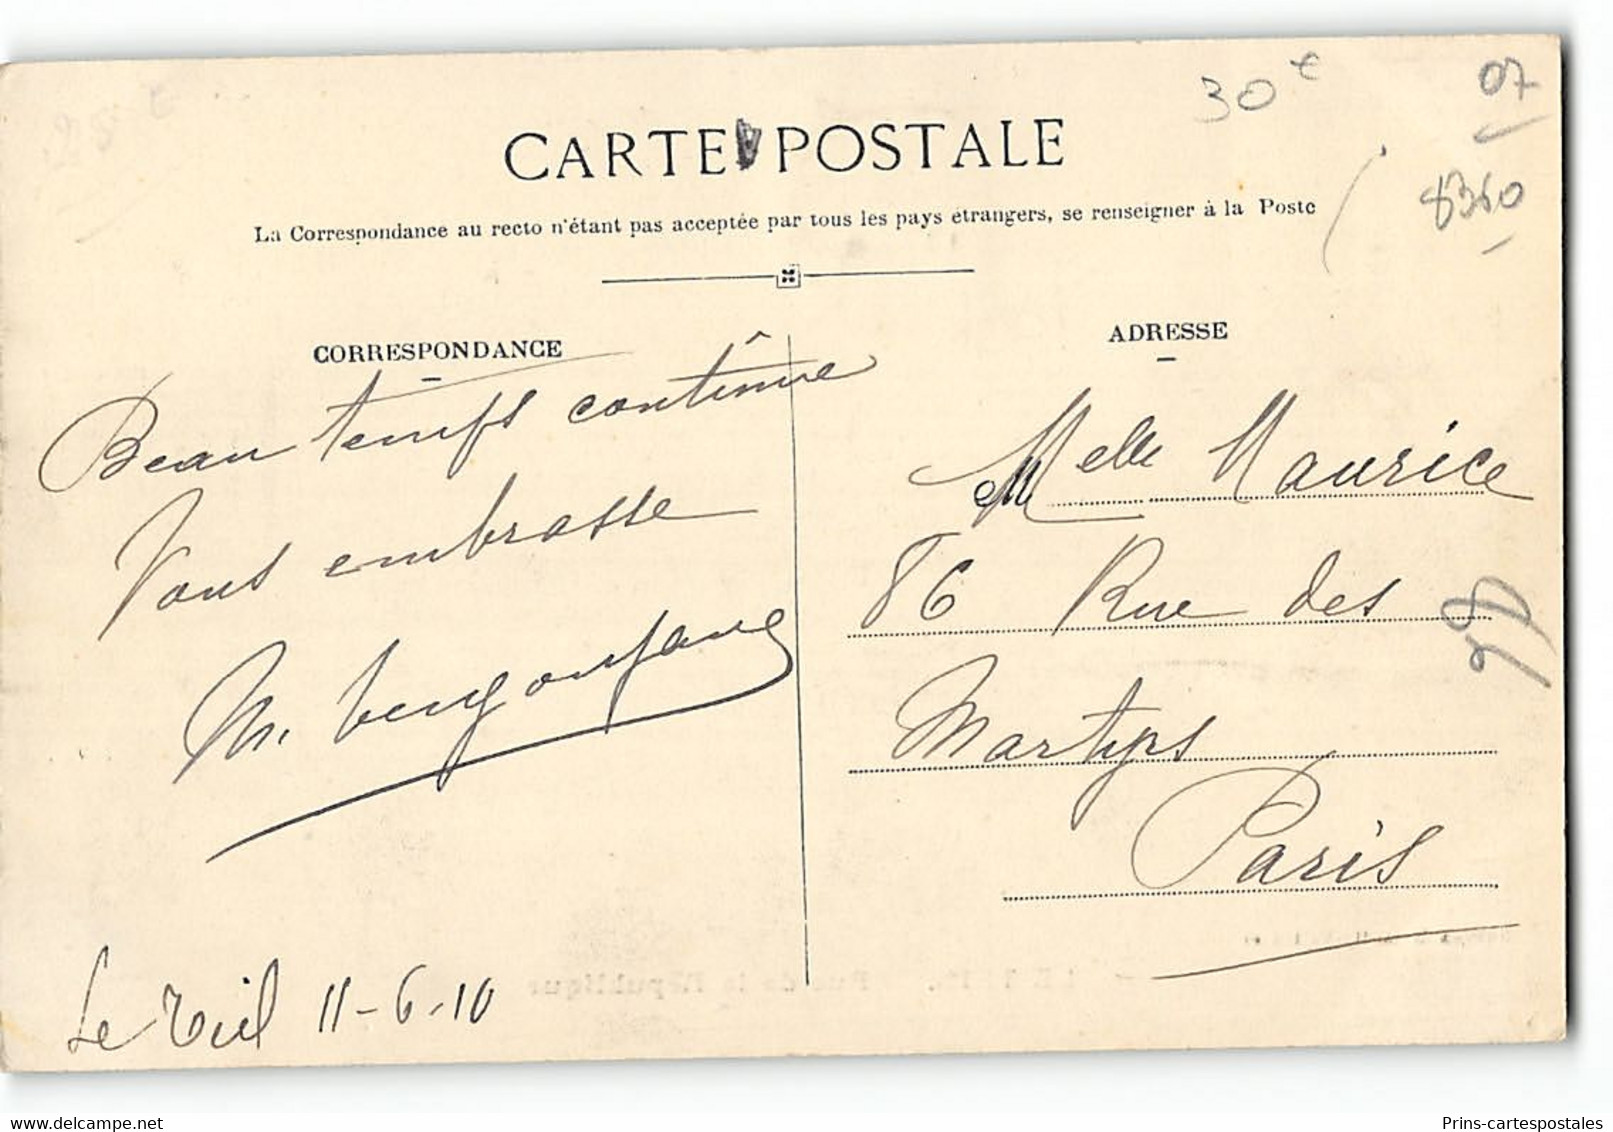 30 €
07
8360
CARTE POSTALE
La Correspondance au recto n'étant pas acceptée par tous les pays étrangers, se renseigner à la Poste
CORRESPONDANCE
Beau temps continue
Vous embrasse
M.
Le Teil 11-6-10
ADRESSE
Melle Maurice
86 Rue des
Martyrs
Paris
delcampe.net
Prins-cartespostales